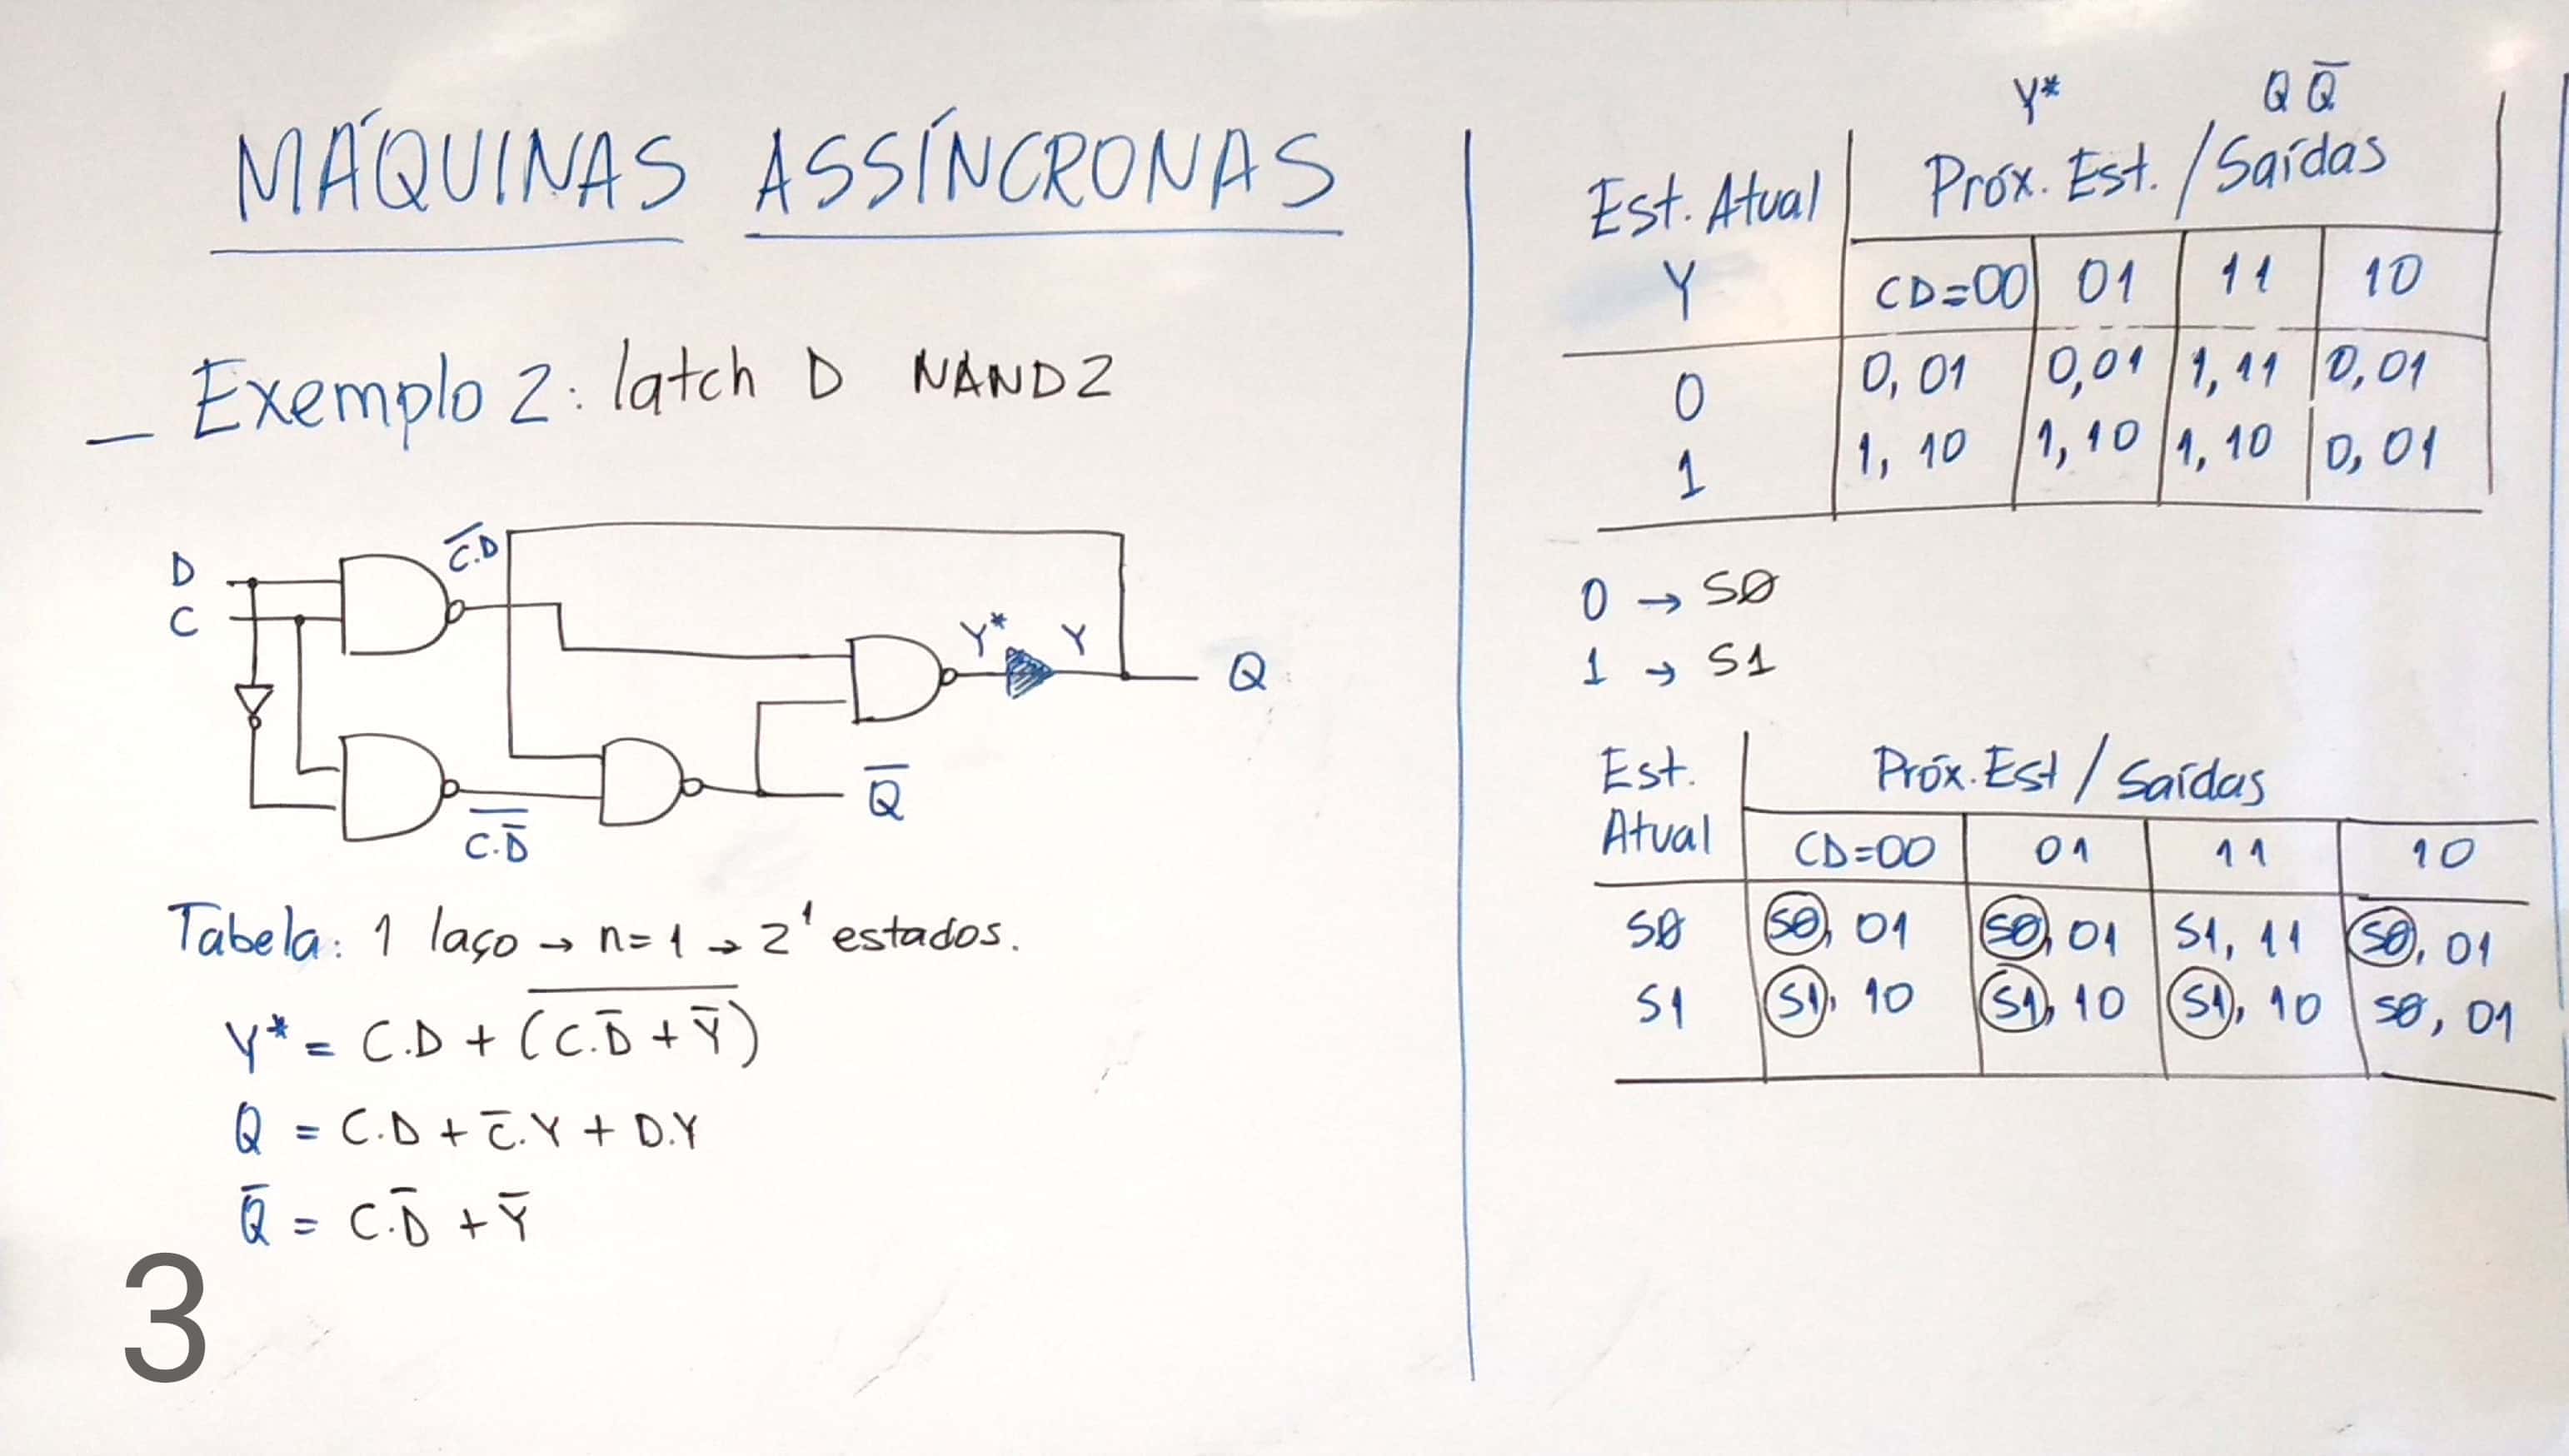 MÁQUINAS ASSÍNCRONAS
— Exemplo 2: latch D NAND2
D
C
C̅.̅D̅
Y*
Y
Q
Q̅
C̅.̅D̅̅
Tabela: 1 laço → n=1 → 2¹ estados.
Y* = C.D + (C.D̅ + Y̅)̅
Q = C.D + C̅.Y + D.Y
Q̅ = C.D̅ + Y̅
3
Y* Q Q̅
Est. Atual Próx. Est. / Saídas
Y CD=00 01 11 10
0 0, 01 0,01 1, 11 0, 01
1 1, 10 1, 10 1, 10 0, 01
0 → SØ
1 → S1
Est. Atual Próx. Est / Saídas
CD=00 01 11 10
SØ SØ, 01 SØ, 01 S1, 11 SØ, 01
S1 S1, 10 S1, 10 S1, 10 SØ, 01